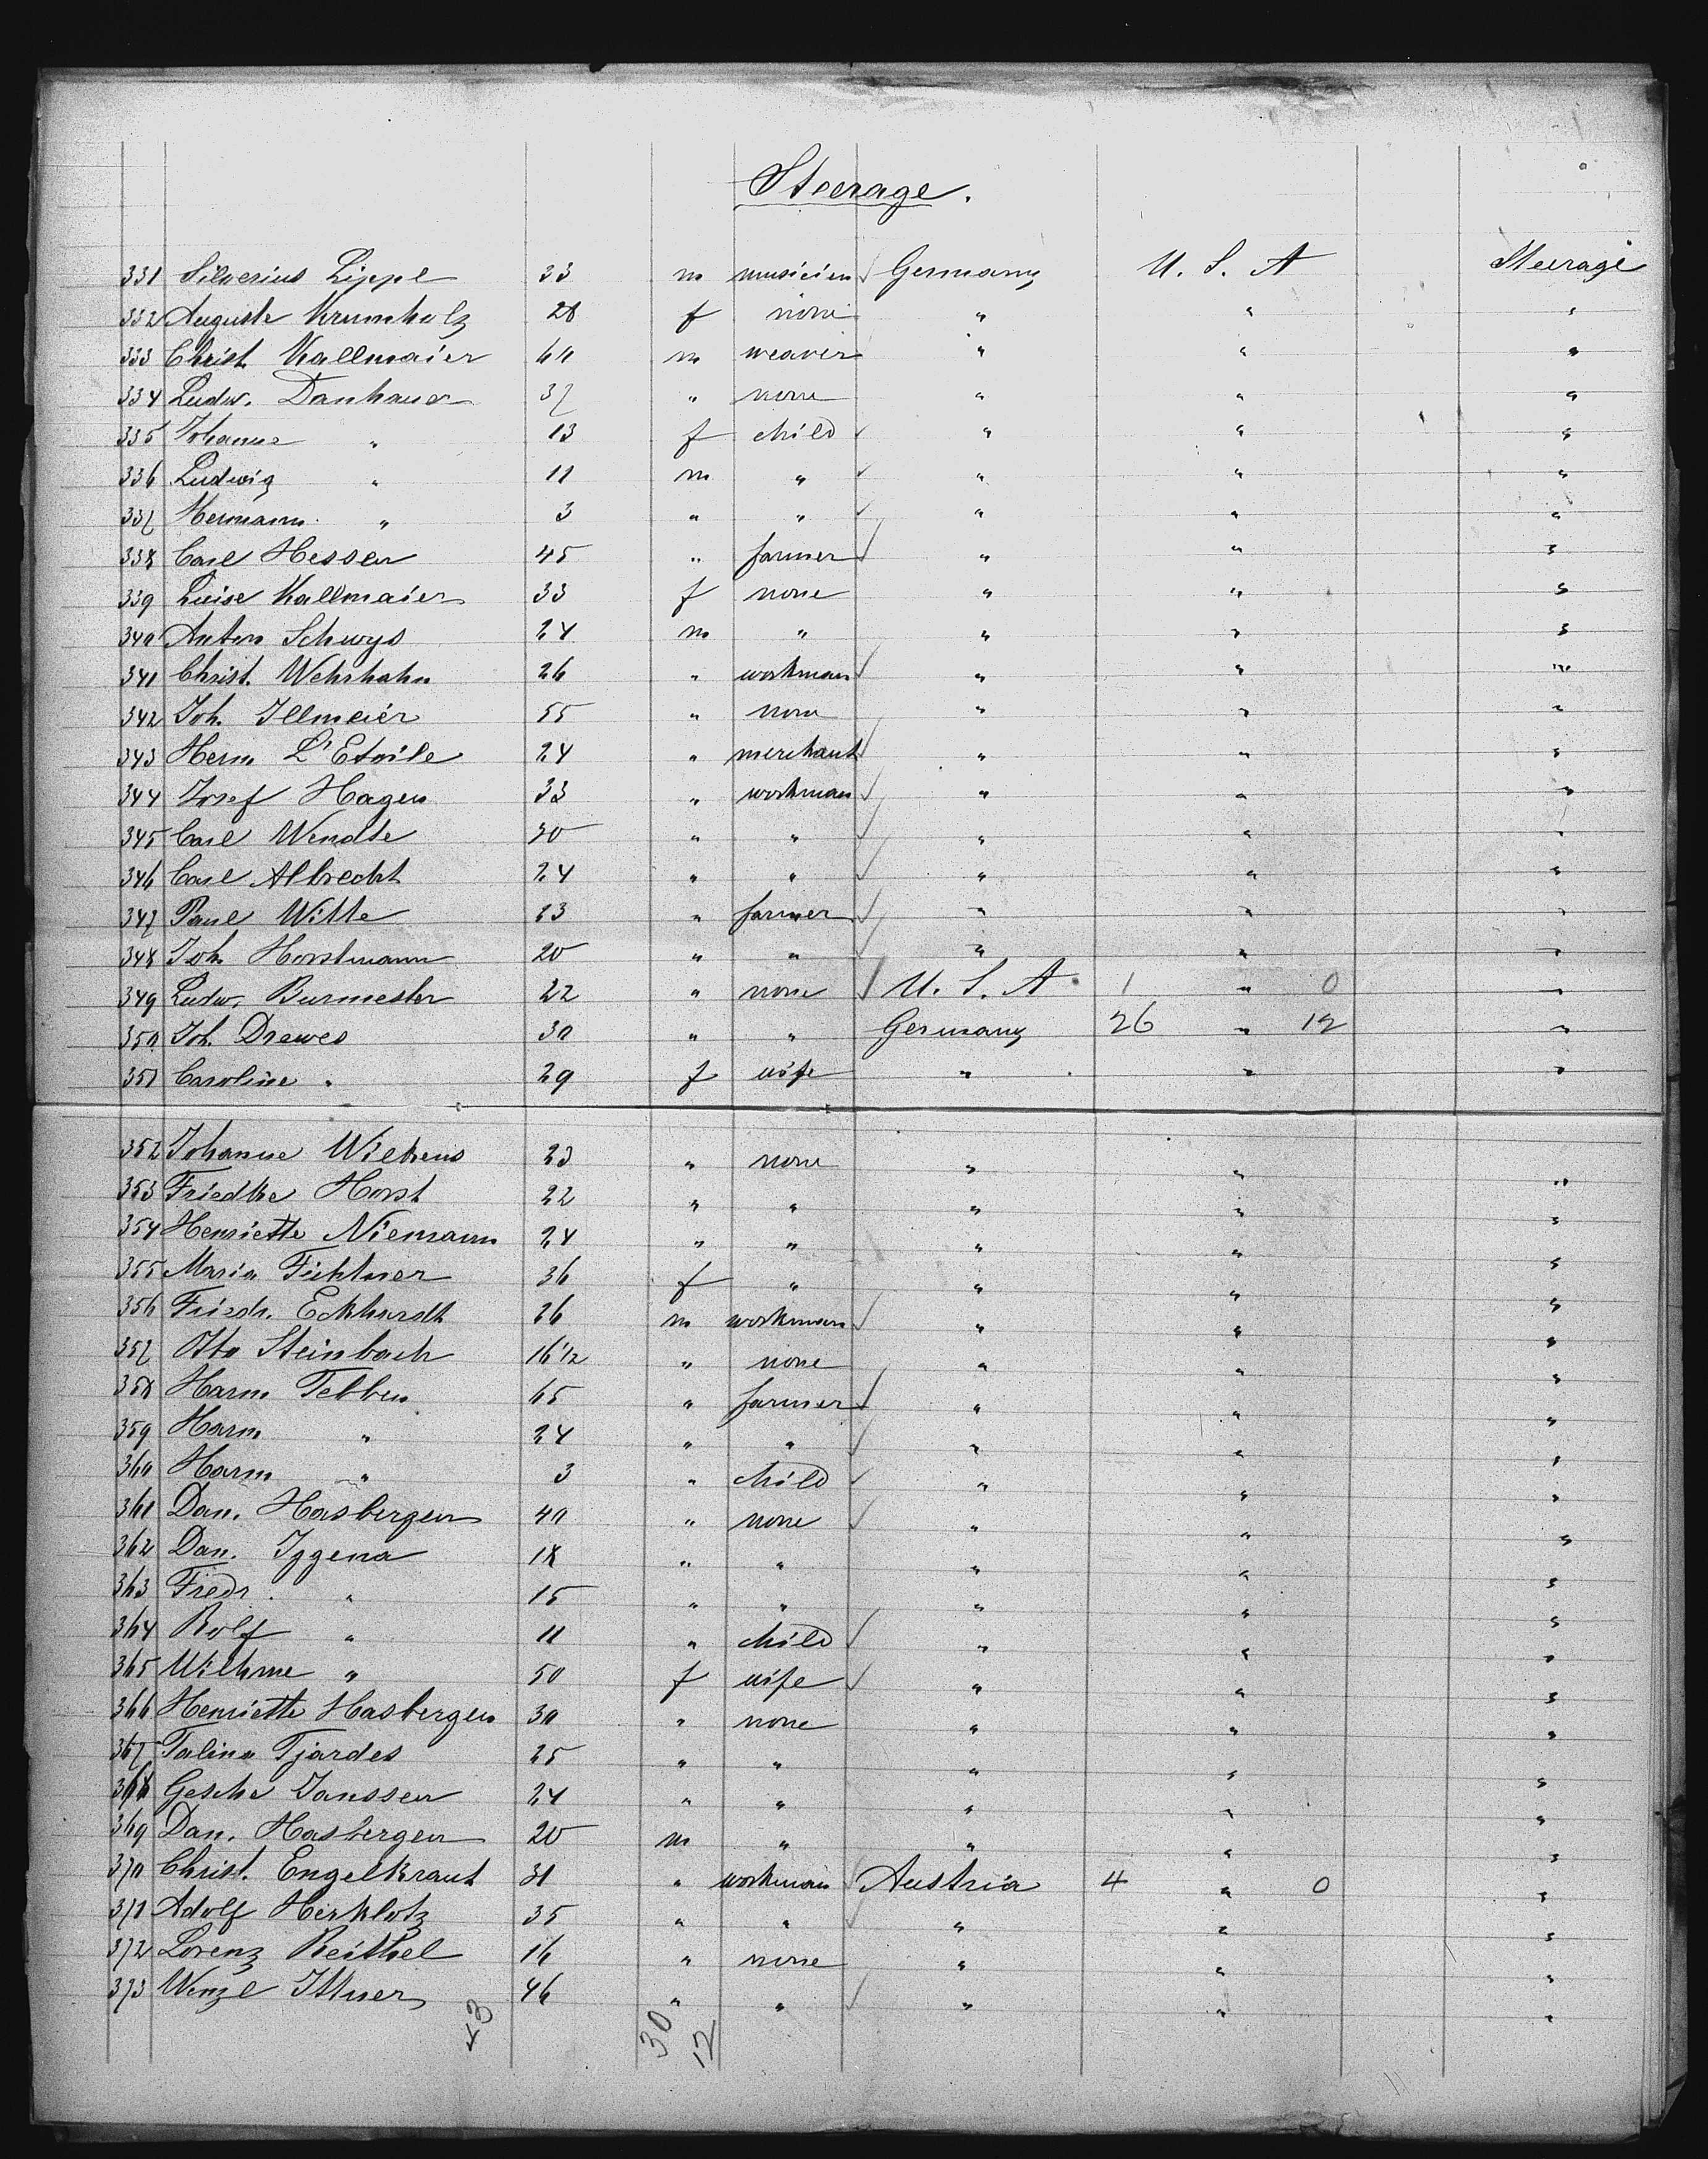 Steerage.
331 Silverius Lippe 33 m musicien Germany U. S. A Steerage
332 Auguste Krumholz 28 f none " " "
333 Christ. Kallmaier 60 m weaver " " "
334 Ludw. Danhauer 37 " none " " "
335 Johanne " 13 f child " " "
336 Ludwig " 11 m " " " "
337 Hermann " 3 " " " " "
338 Carl Hessen 45 " farmer " " "
339 Luise Kallmaier 33 f none " " "
340 Anton Schwys 24 m " " " "
341 Christ. Wehrhahn 26 " workman " " "
342 Joh. Illmeier 55 " none " " "
343 Herm L'Etoile 24 " merchant " " "
344 Josef Hagen 33 " workman " " "
345 Carl Wendte 30 " " " " "
346 Carl Albrecht 24 " " " " "
347 Paul Witte 23 " farmer " " "
348 Joh. Horstmann 20 " " " " "
349 Ludw. Burmester 22 " none U. S. A 1 " 0 "
350 Joh. Drewes 30 " " Germany 26 " 12 "
351 Caroline " 29 f wife " " "
352 Johanne Wilkens 23 " none " " "
353 Friedke Horst 22 " " " " "
354 Henriette Niemann 24 " " " " "
355 Maria Fichtner 36 f " " " "
356 Friedr. Eckhardt 26 m workman " " "
357 Otto Steinbach 16 1/2 " none " " "
358 Harm Tebben 65 " farmer " " "
359 Harm " 24 " " " " "
360 Harm " 3 " child " " "
361 Dan. Hasbergen 40 " none " " "
362 Dan. Iggena 18 " " " " "
363 Fredr. " 15 " " " " "
364 Rolf " 11 " child " " "
365 Wilhme " 50 f wife " " "
366 Henriette Hasbergen 30 " none " " "
367 Talina Tjardes 25 " " " " "
368 Gesche Janssen 24 " " " " "
369 Dan. Hasbergen 20 m " " " "
370 Christ. Engelkraut 31 " workman Austria 4 " 0 "
371 Adolf Herklotz 35 " " " " "
372 Lorenz Reithel 16 " none " " "
373 Wenzl Ittner 46 " " " " "
43 30
12